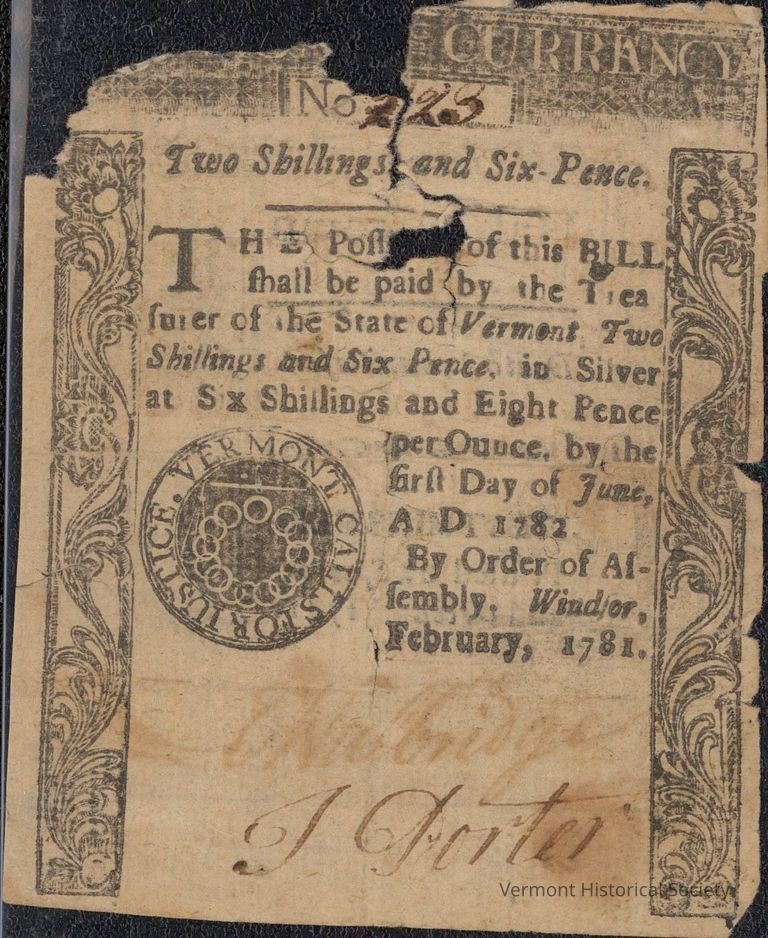 CURRENCY
No 228
Two Shillings and Six-Pence.
THE Poſſ of this BILL
ſhall be paid by the Trea
ſurer of the State of Vermont Two
Shillings and Six Pence, in Silver
at Six Shillings and Eight Pence
per Ounce, by the
firſt Day of June,
A. D. 1782
By Order of Aſ-
ſembly, Windſor,
February, 1781.
VERMONT CALLS FOR JUSTICE.
Walbridge
J Porter
Vermont Historical Society